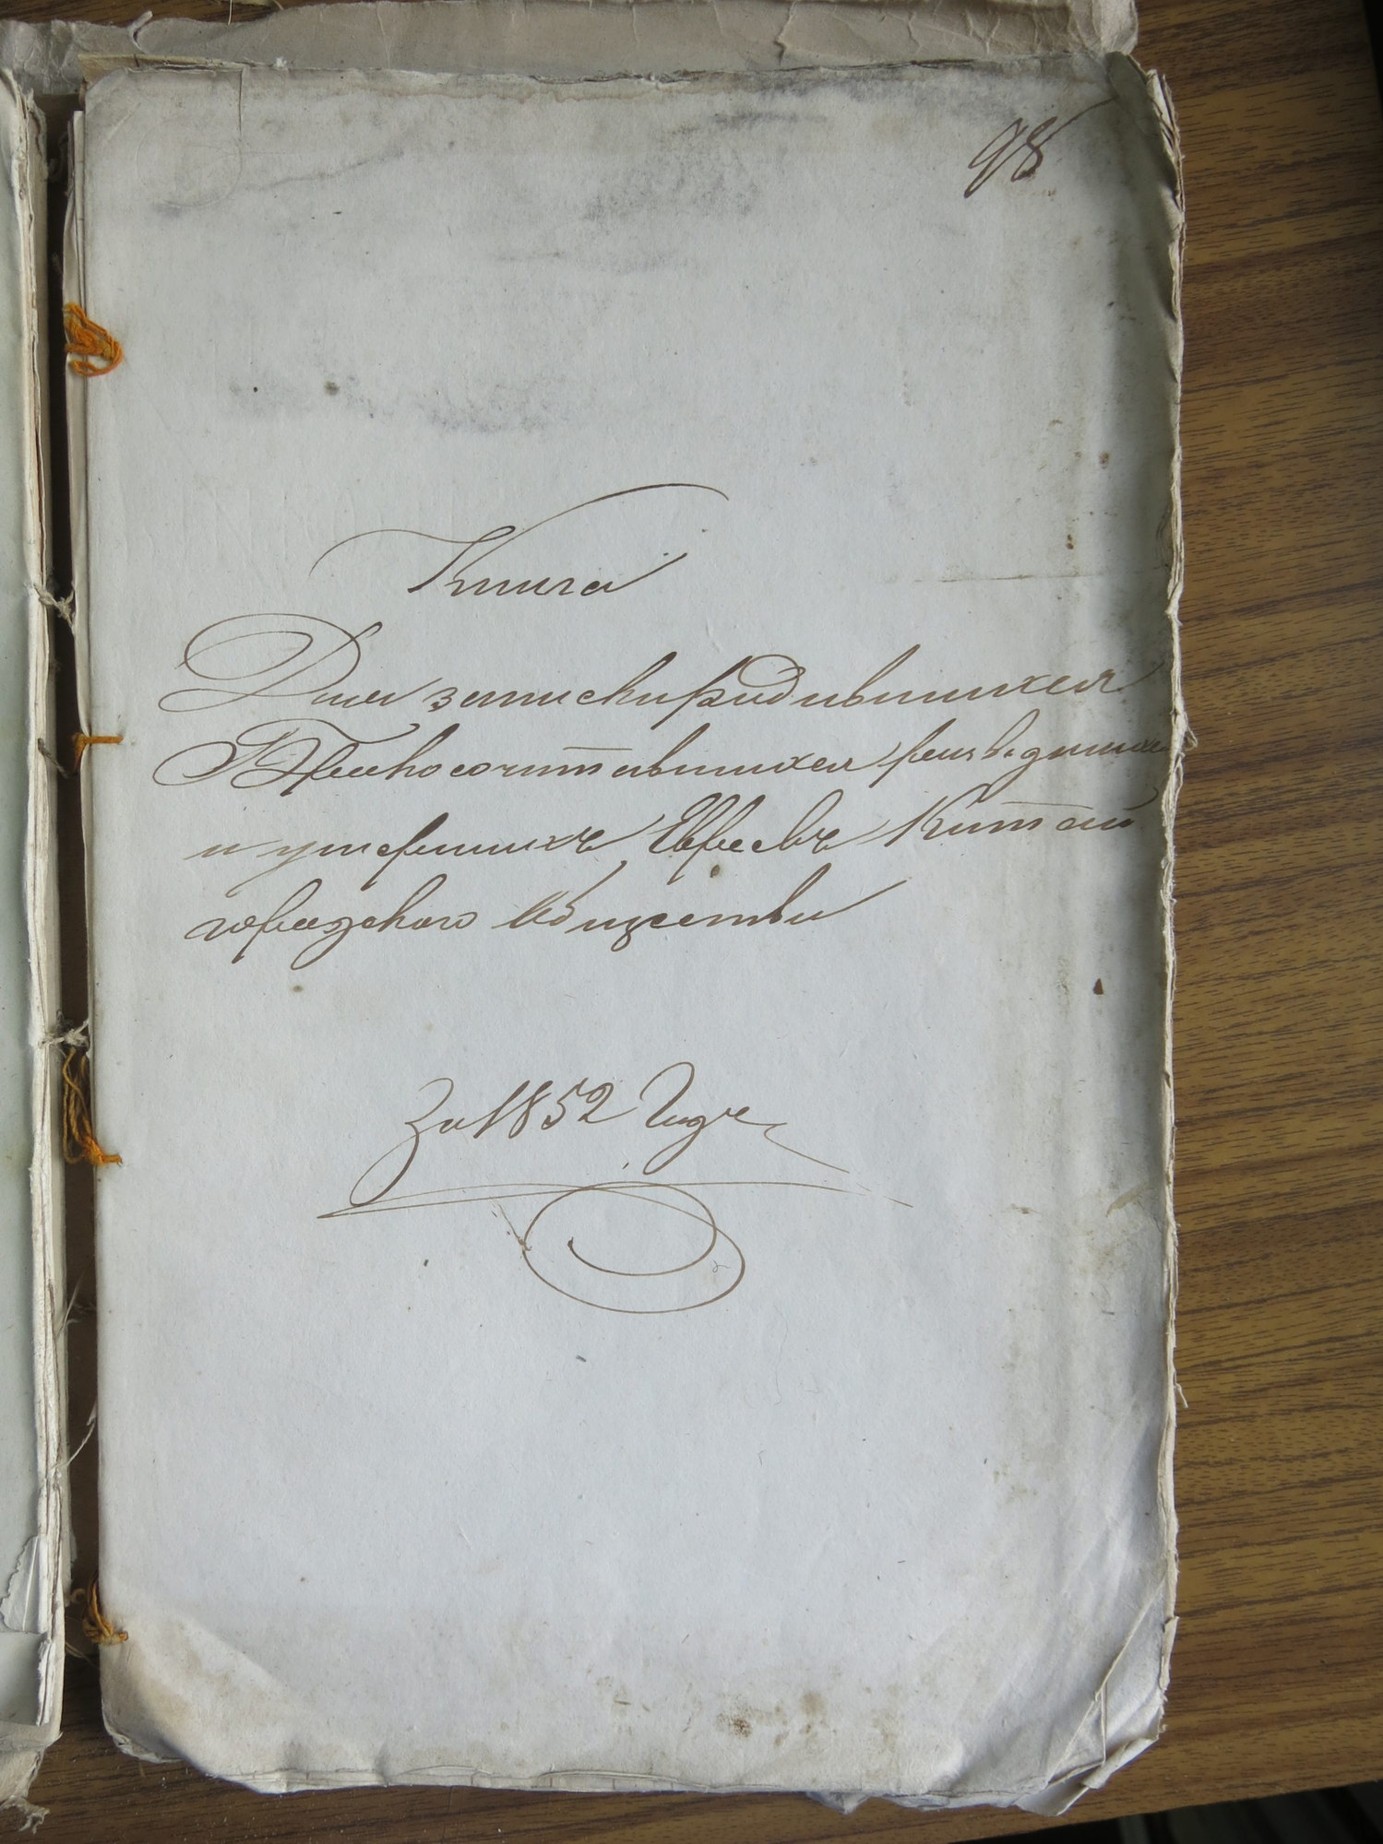 98
Книга
Для записки родившихся
Бракосочитавшихся разведшихся
и умершихъ Евреевъ Китай
городского Общества
За 1852 Годъ